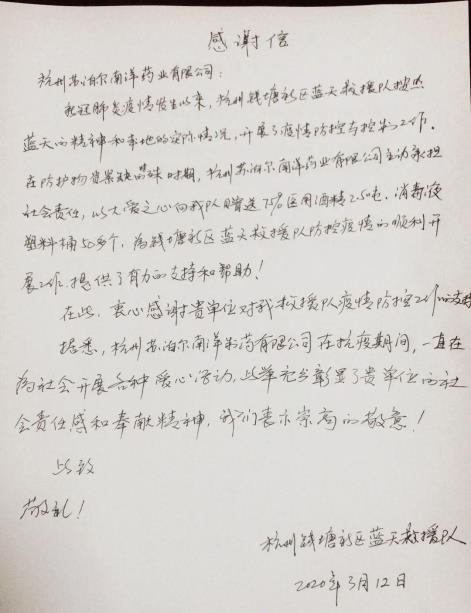 感谢信
杭州苏泊尔南洋药业有限公司：
新冠肺炎疫情发生以来，杭州钱塘新区蓝天救援队按照
蓝天的精神和本地的实际情况，开展了疫情防控与控制工作.
在防护物资紧缺的特殊时期，杭州苏泊尔南洋药业有限公司主动承担
社会责任，以大爱之心向我队赠送75%医用酒精250吨.消毒液
塑料桶50多个，为钱塘新区蓝天救援队防控疫情的顺利开
展工作.提供了有力的支持和帮助！
在此，衷心感谢贵单位对我救援队疫情防控工作的支持
据悉，杭州苏泊尔南洋药业有限公司在抗疫期间，一直在
为社会开展各种爱心活动，此举充分彰显了贵单位的社
会责任感和奉献精神，我们表示崇高的敬意！
此致
敬礼！
杭州钱塘新区蓝天救援队
2020年3月12日